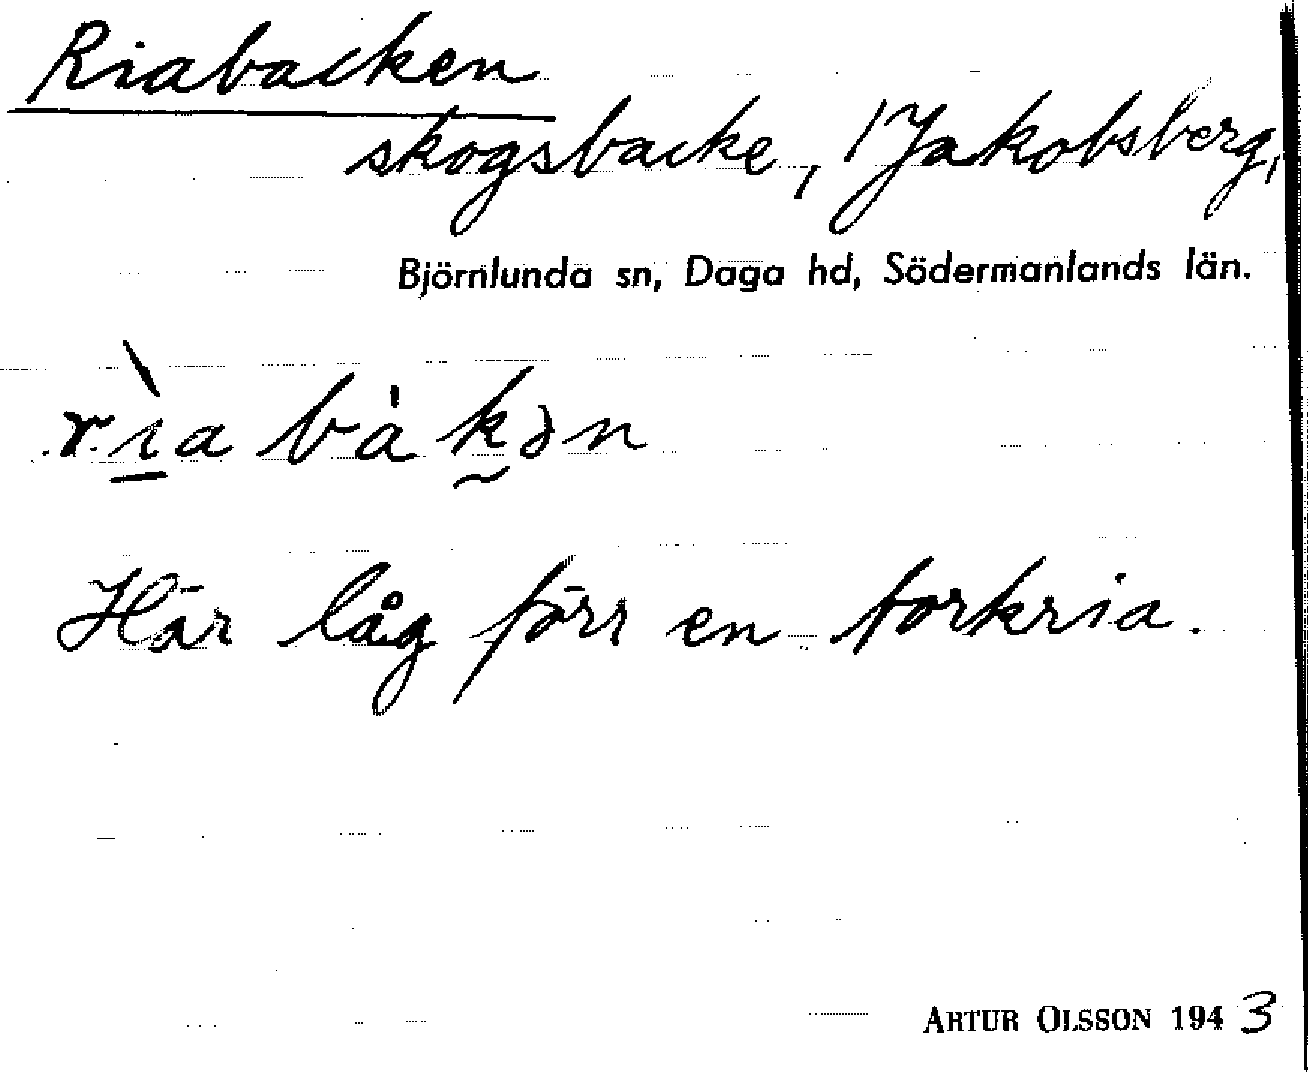 Riabacken
skogsbacke, 1 Jakobsberg,
Björnlunda sn, Daga hd, Södermanlands län.
rìa bàkən
Här låg förr en torkria.
ARTUR OLSSON 1943